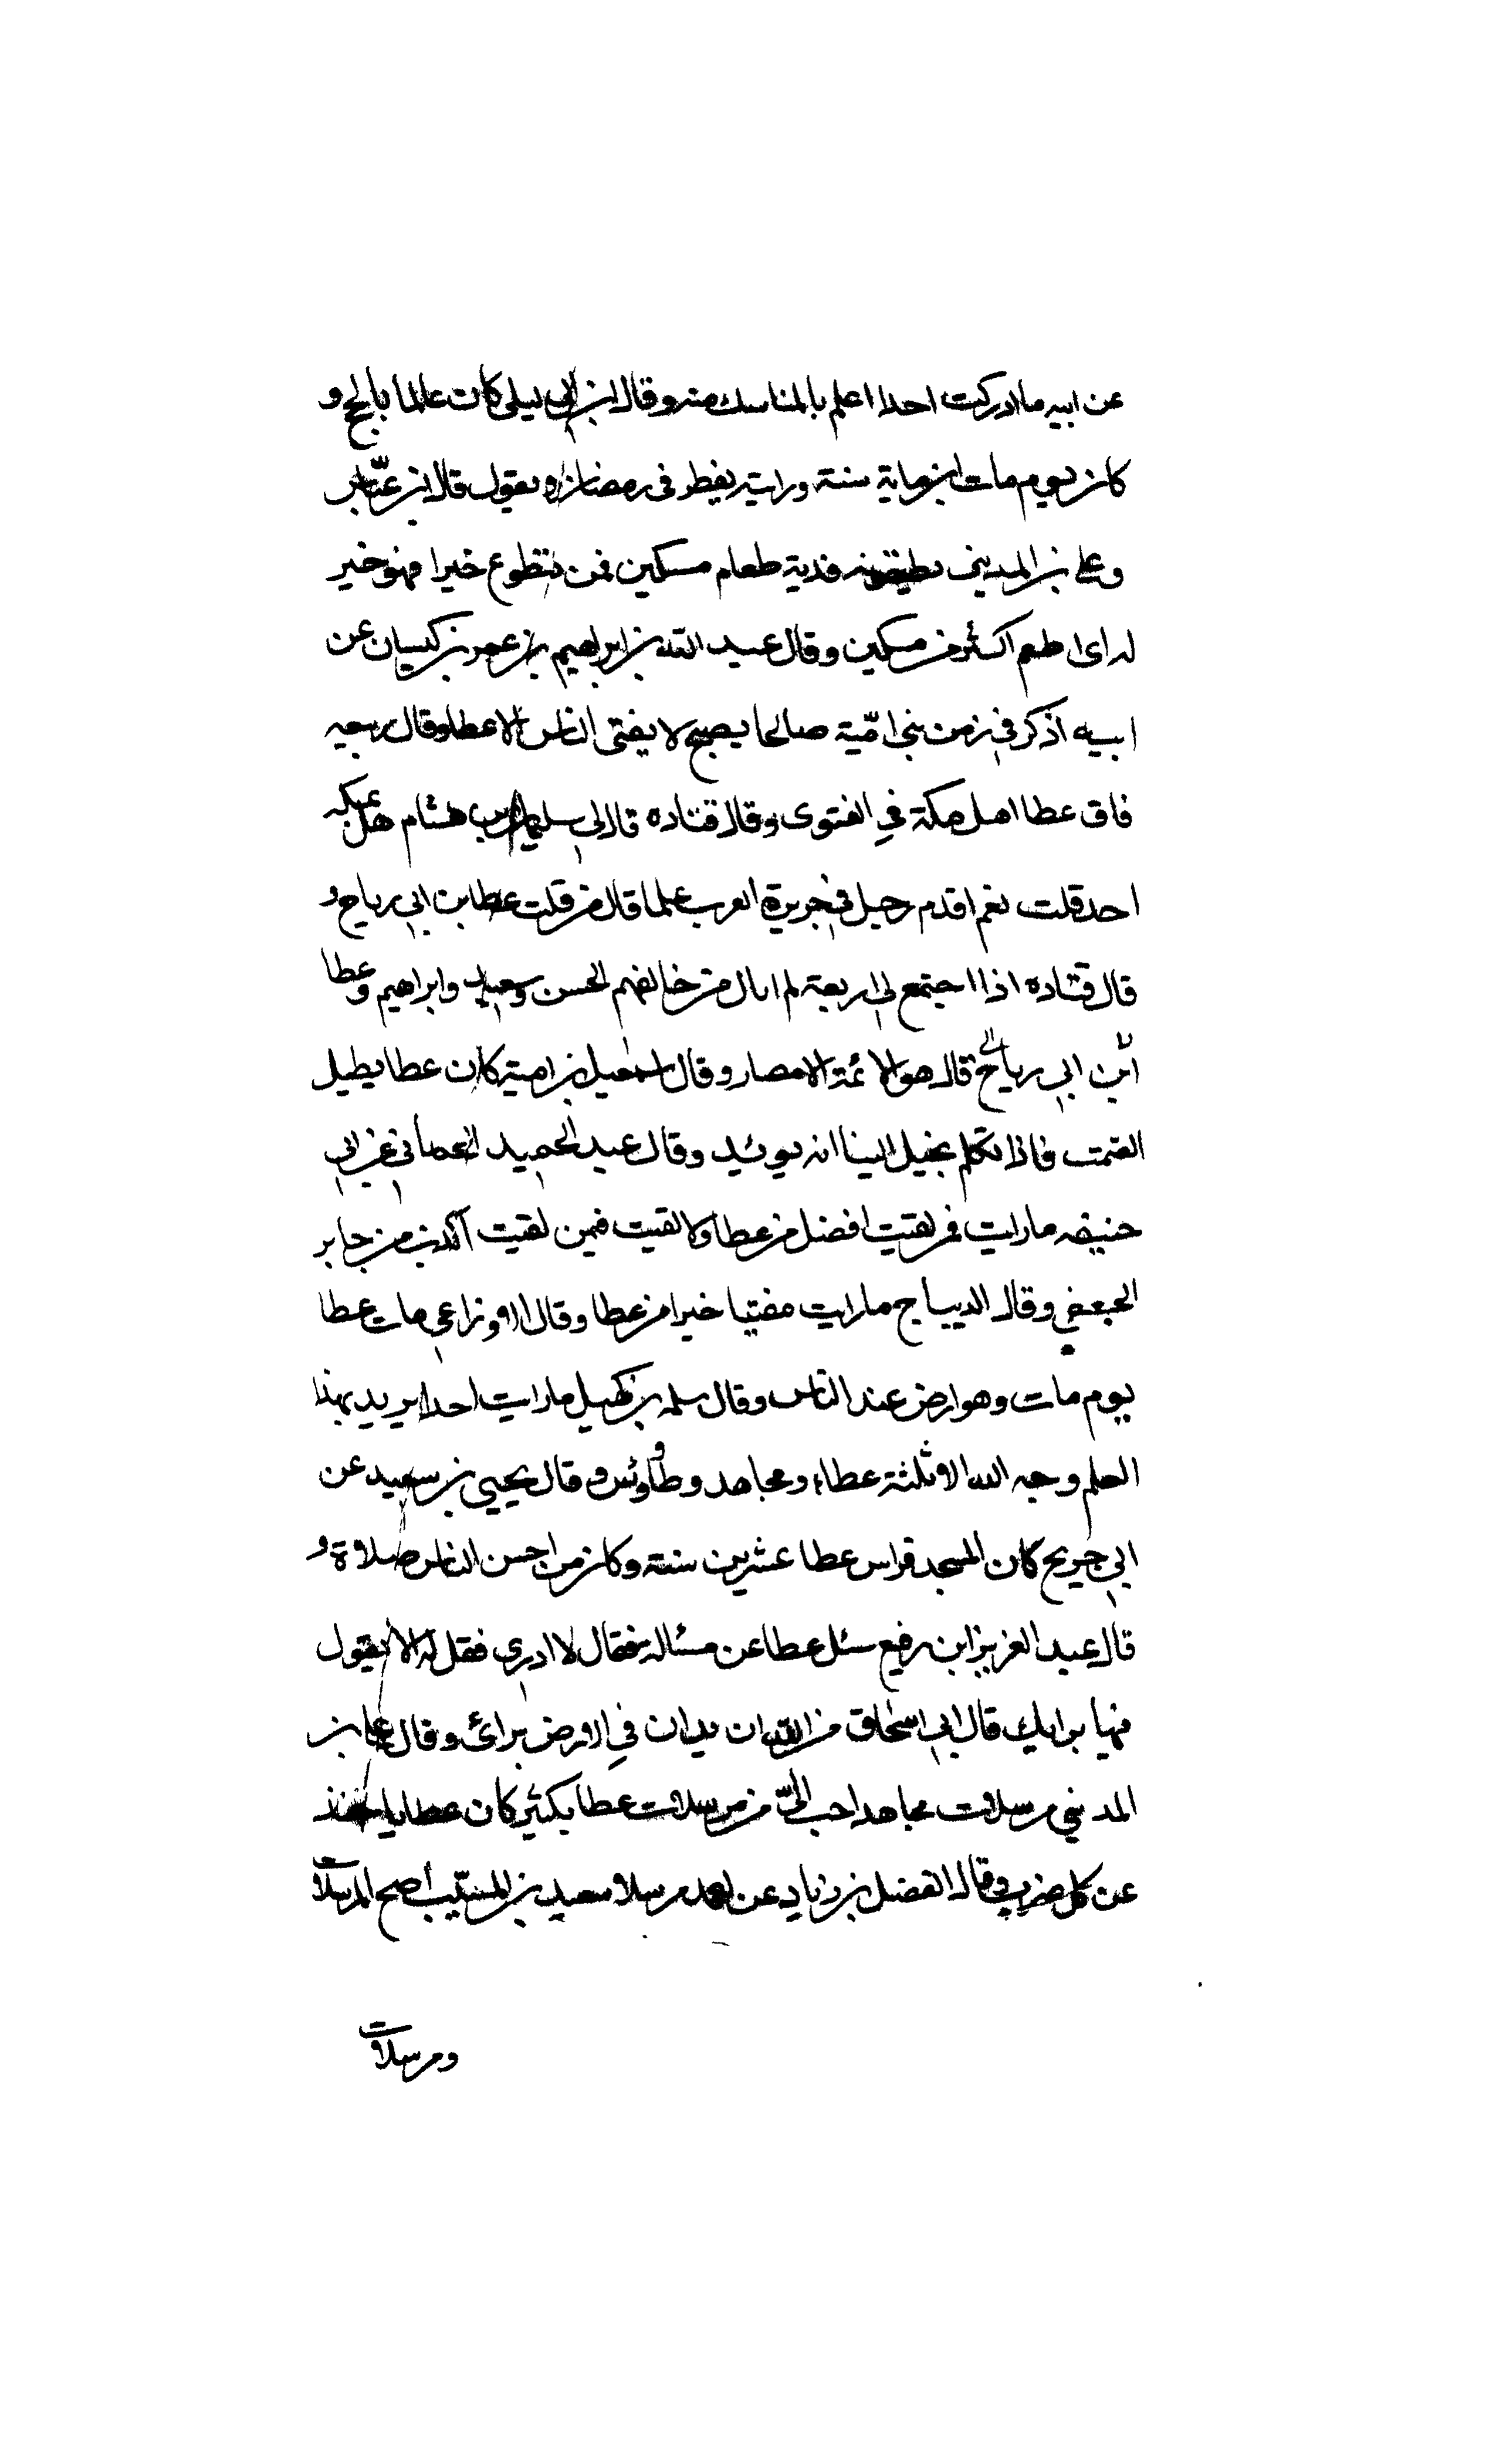 عن ابيه ما ادركت احدا اعلم بالمناسك منه وقال ابن ابي ليلى كان عالما بالحج و
كان يوم مات ابن مائة سنة ورايته يفطر فى رمضان ويقول قال ابن عباس
وعلى الذين يطيقونه فدية طعام مسكين فمن تطوع خيرا فهو خير
له اى اطعم اكثر من مسكين وقال عبد الله بن ابراهيم بن عمر بن كيسان عن
ابيه اذكر في زمن بني امّية صالحا يصيح لا يفتى الناس الا عطا وقال ربيعه
فاق عطا اهل مكة في الفتوى وقال قتاده قال لى سليمان بن هشام هل بمكه
احد قلت نعم اقدم رجل في جزيرة العرب علما قال من قلت عطا بن ابي رياح و
قال قتاده اذا اجتمع لى اربعة لم ابال من خالفهم الحسن وسعيد وابراهيم وعطا
ابن ابي رياح قال هولا ئمة الامصار وقال اسمعيل بن امية كان عطا يطيل
الصمت فاذا تكلم يخيل الينا انه يويد وقال عبد الحميد الحمانى عن ابى
حنيفه ما رايت فمن لقيت افضل من عطا ولا لقيت فيمن لقيت اكذب من جابر
الجعفي وقال الديباج ما رايت مفتيا خيرا من عطا وقال الاوزاعي مات عطا
يوم مات وهو ارض عند الناس وقال سلمه بن كهيل ما رايت احدا يريد بهذا
العلم وجه الله الا ثلثة عطاء ومجاهد وطاوئس وقال يحيى بن سعيد عن
ابي جريح كان المسجد فراس عطا عشرين سنة وكان من احسن الناس صلاة و
قال عبد العزيز ابن رفيع سئل عطا عن مسالة فقال لا ادري فقل له الا تقول
فيها برايك قال ابي استحاق من الله ان يدان في الارض برائ وقال على بن
المديني مرسلات مجاهد احب الىّ من مرسلات عطا بكثير كان عطا ياخذ
عن كل ضرب وقال الفضل بن زياد عن احمد مرسلا سعيد بن المسيّب اصح المرسلات
ومرسلات